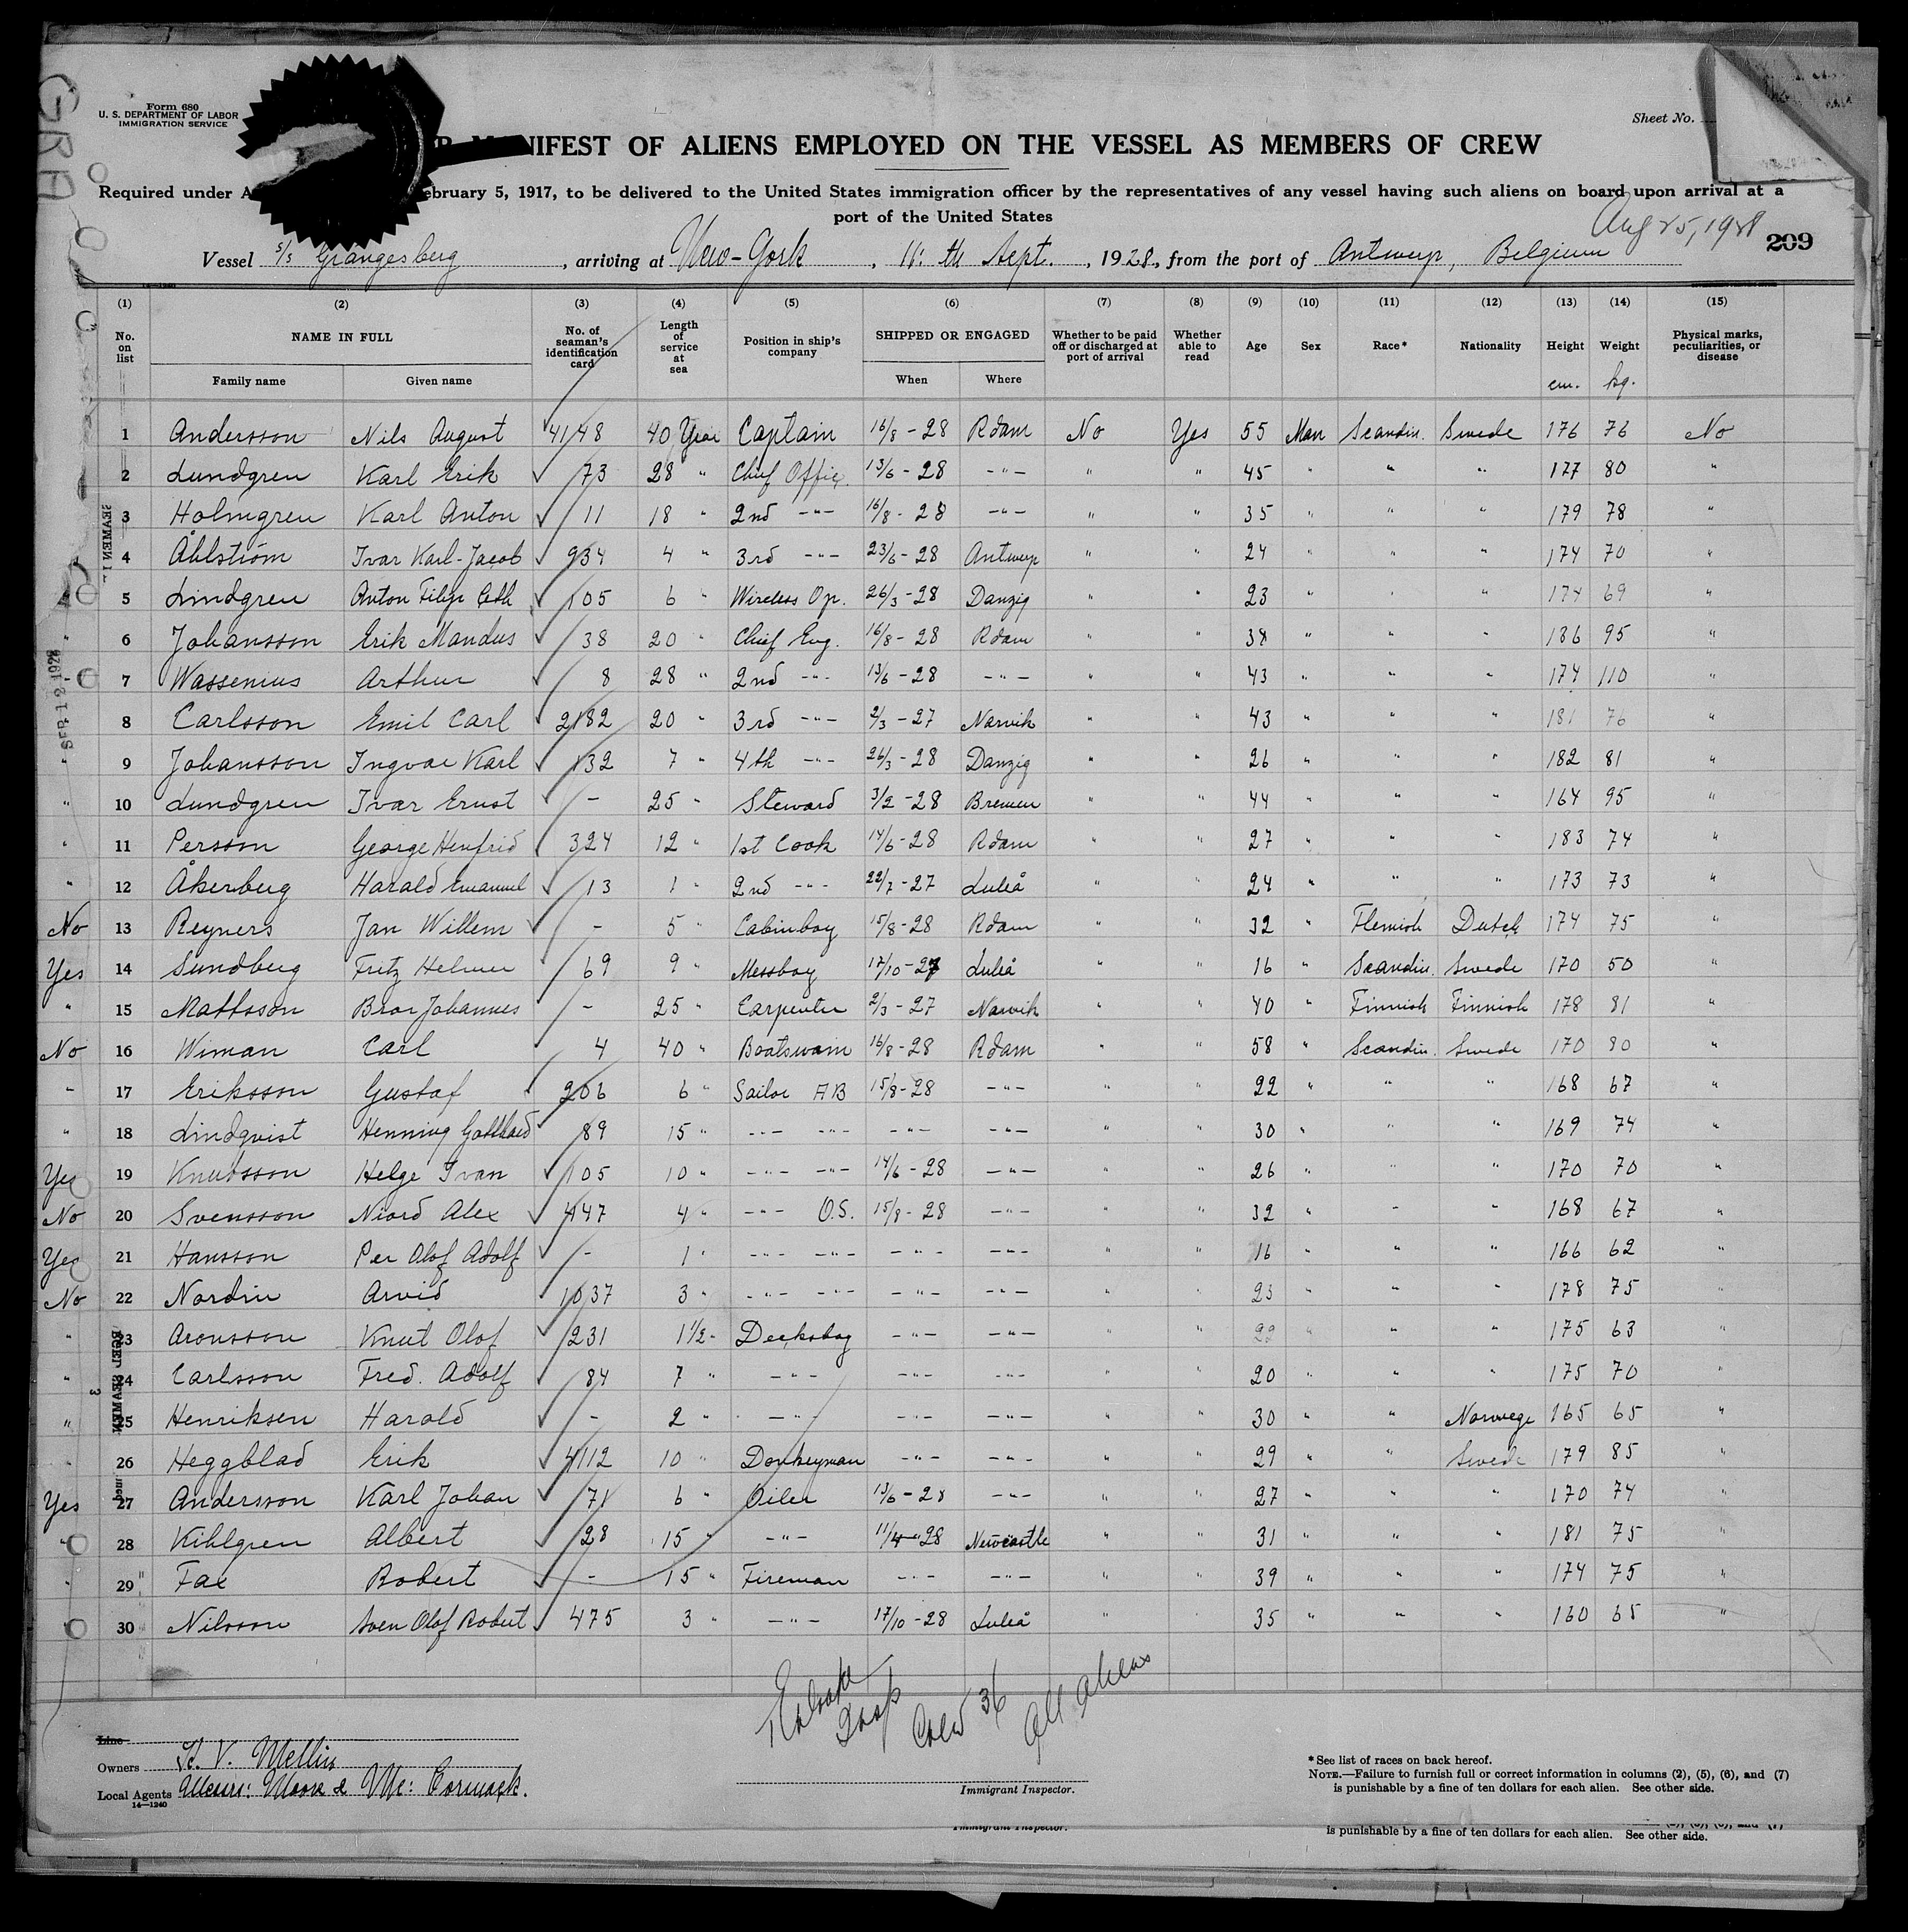 Form 680
U. S. DEPARTMENT OF LABOR
IMMIGRATION SERVICE
Sheet No.
MANIFEST OF ALIENS EMPLOYED ON THE VESSEL AS MEMBERS OF CREW
Required under A ebruary 5, 1917, to be delivered to the United States immigration officer by the representatives of any vessel having such aliens on board upon arrival at a
port of the United States
Aug 25, 1928
209
Vessel s/s Grängesberg, arriving at New-York, 11:th Sept., 1928, from the port of Antwerp, Belgium
(1) (2) (3) (4) (5) (6) (7) (8) (9) (10) (11) (12) (13) (14) (15)
No. on list NAME IN FULL Family name Given name No. of seaman's identification card Length of service at sea Position in ship's company SHIPPED OR ENGAGED When Where Whether to be paid off or discharged at port of arrival Whether able to read Age Sex Race* Nationality Height cm. Weight kg. Physical marks, peculiarities, or disease
1 Andersson Nils August 4148 40 Year Captain 16/8-28 Rdam No Yes 55 Man Scandin. Swede 176 76 No
2 Lundgren Karl Erik 73 28 " Chief Offic. 13/6-28 -"- " " 45 " " " 177 80 "
3 Holmgren Karl Anton 11 18 " 2nd -"- 16/8-28 -"- " " 35 " " " 179 78 "
4 Åhlström Ivar Karl-Jacob 934 4 " 3rd -"- 23/6-28 Antwerp " " 24 " " " 174 70 "
5 Lindgren Anton Filip 105 6 " Wireless Op. 26/3-28 Danzig " " 23 " " " 174 69 "
6 Johansson Erik Mandus 38 20 " Chief Eng. 16/8-28 Rdam " " 38 " " " 186 95 "
7 Wassenius Arthur 8 28 " 2nd -"- 13/6-28 -"- " " 43 " " " 174 110 "
8 Carlsson Emil Carl 2182 20 " 3rd -"- 2/3-27 Narvik " " 43 " " " 181 76 "
9 Johansson Ingvar Karl 132 7 " 4th -"- 26/3-28 Danzig " " 26 " " " 182 81 "
" 10 Lundgren Ivar Ernst - 25 " Steward 3/2-28 Bremen " " 44 " " " 164 95 "
" 11 Persson George Henfrid 324 12 " 1st Cook 14/6-28 Rdam " " 27 " " " 183 74 "
" 12 Åkerberg Harald Emanuel 13 1 " 2nd -"- 22/7-27 Luleå " " 24 " " " 173 73 "
No 13 Reyners Jan Willem - 5 " Cabinboy 15/8-28 Rdam " " 32 " Flemish Dutch 174 75 "
Yes 14 Sundberg Fritz Helmer 69 9 " Messboy 17/10-27 Luleå " " 16 " Scandin. Swede 170 50 "
" 15 Mattsson Bror Johannes - 25 " Carpenter 2/3-27 Narvik " " 40 " Finnish Finnish 178 81 "
No 16 Wiman Carl 4 40 " Boatswain 16/8-28 Rdam " " 58 " Scandin. Swede 170 80 "
" 17 Eriksson Gustaf 206 6 " Sailor AB 15/8-28 -"- " " 22 " " " 168 67 "
" 18 Lindqvist Henning Gotthard 89 15 " -"- -"- -"- -"- " " 30 " " " 169 74 "
Yes 19 Knutsson Helge Ivan 105 10 " -"- -"- 14/6-28 -"- " " 26 " " " 170 70 "
No 20 Svensson Niord Alex 447 4 " -"- O.S. 15/8-28 -"- " " 32 " " " 168 67 "
Yes 21 Hansson Per Olof Adolf - 1 " -"- -"- -"- -"- " " 16 " " " 166 62 "
No 22 Nordin Arvid 1037 3 " -"- -"- -"- -"- " " 23 " " " 178 75 "
" 23 Aronsson Knut Olof 231 1 1/2 " Decksboy -"- -"- " " 22 " " " 175 63 "
" 24 Carlsson Fred. Adolf 84 7 " -"- -"- -"- " " 20 " " " 175 70 "
" 25 Henriksen Harald - 2 " -"- -"- -"- " " 30 " " Norwege 165 65 "
" 26 Heggblad Erik 4112 10 " Donkeyman -"- -"- " " 29 " " Swede 179 85 "
Yes 27 Andersson Karl Johan 71 6 " Oiler 13/6-28 -"- " " 27 " " " 170 74 "
" 28 Kihlgren Albert 28 15 " -"- 11/4-28 Newcastle " " 31 " " " 181 75 "
" 29 Fax Robert - 15 " Fireman -"- -"- " " 39 " " " 174 75 "
30 Nilsson Sven Olof Robert 475 3 " -"- 17/10-28 Luleå " " 35 " " " 160 65 "
SEP 12 1928
Crew 36
All Aliens
Line
Owners H. V. Mellin
Local Agents Messrs: Moore & Mc: Cormack.
14—1240
Immigrant Inspector.
*See list of races on back hereof.
NOTE.—Failure to furnish full or correct information in columns (2), (5), (6), and (7)
is punishable by a fine of ten dollars for each alien. See other side.
Immigrant Inspector.
is punishable by a fine of ten dollars for each alien. See other side.